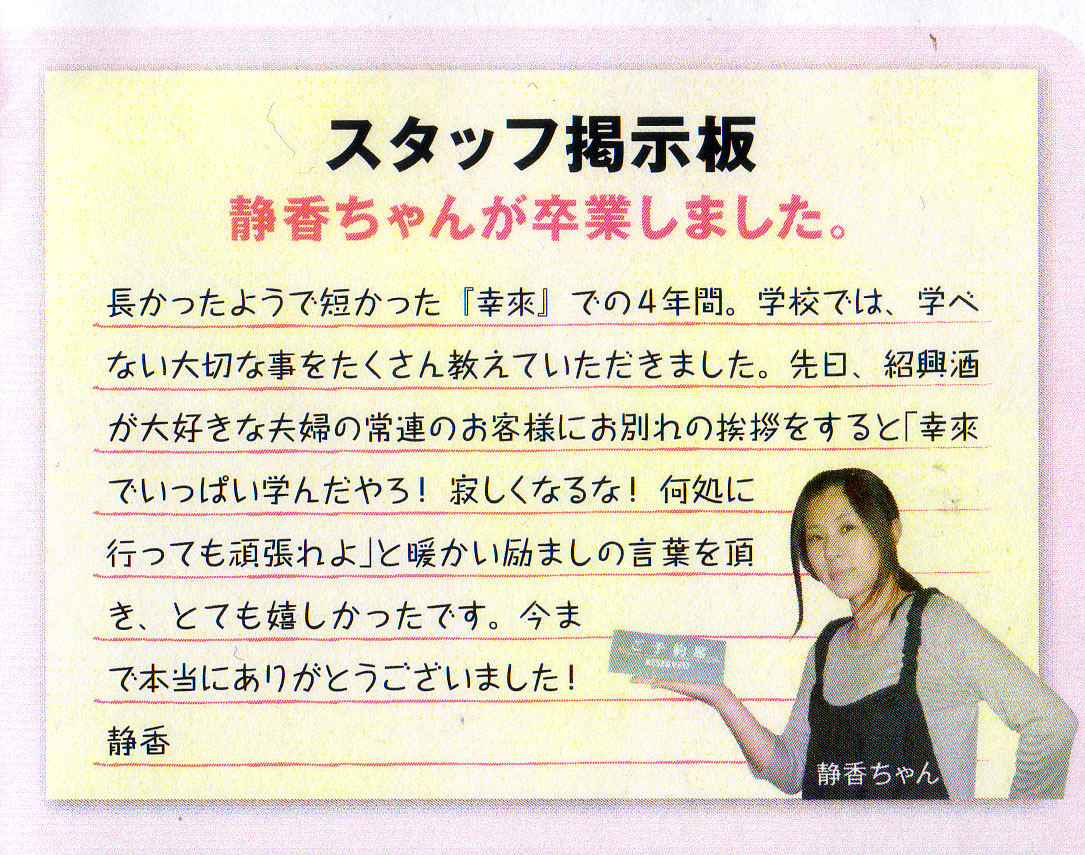 スタッフ掲示板
静香ちゃんが卒業しました。
長かったようで短かった『幸來』での4年間。学校では、学べ
ない大切な事をたくさん教えていただきました。先日、紹興酒
が大好きな夫婦の常連のお客様にお別れの挨拶をすると「幸來
でいっぱい学んだやろ！寂しくなるな！何処に
行っても頑張れよ」と暖かい励ましの言葉を頂
き、とても嬉しかったです。今ま
で本当にありがとうございました！
静香
ご予約席
RESERVED
静香ちゃん